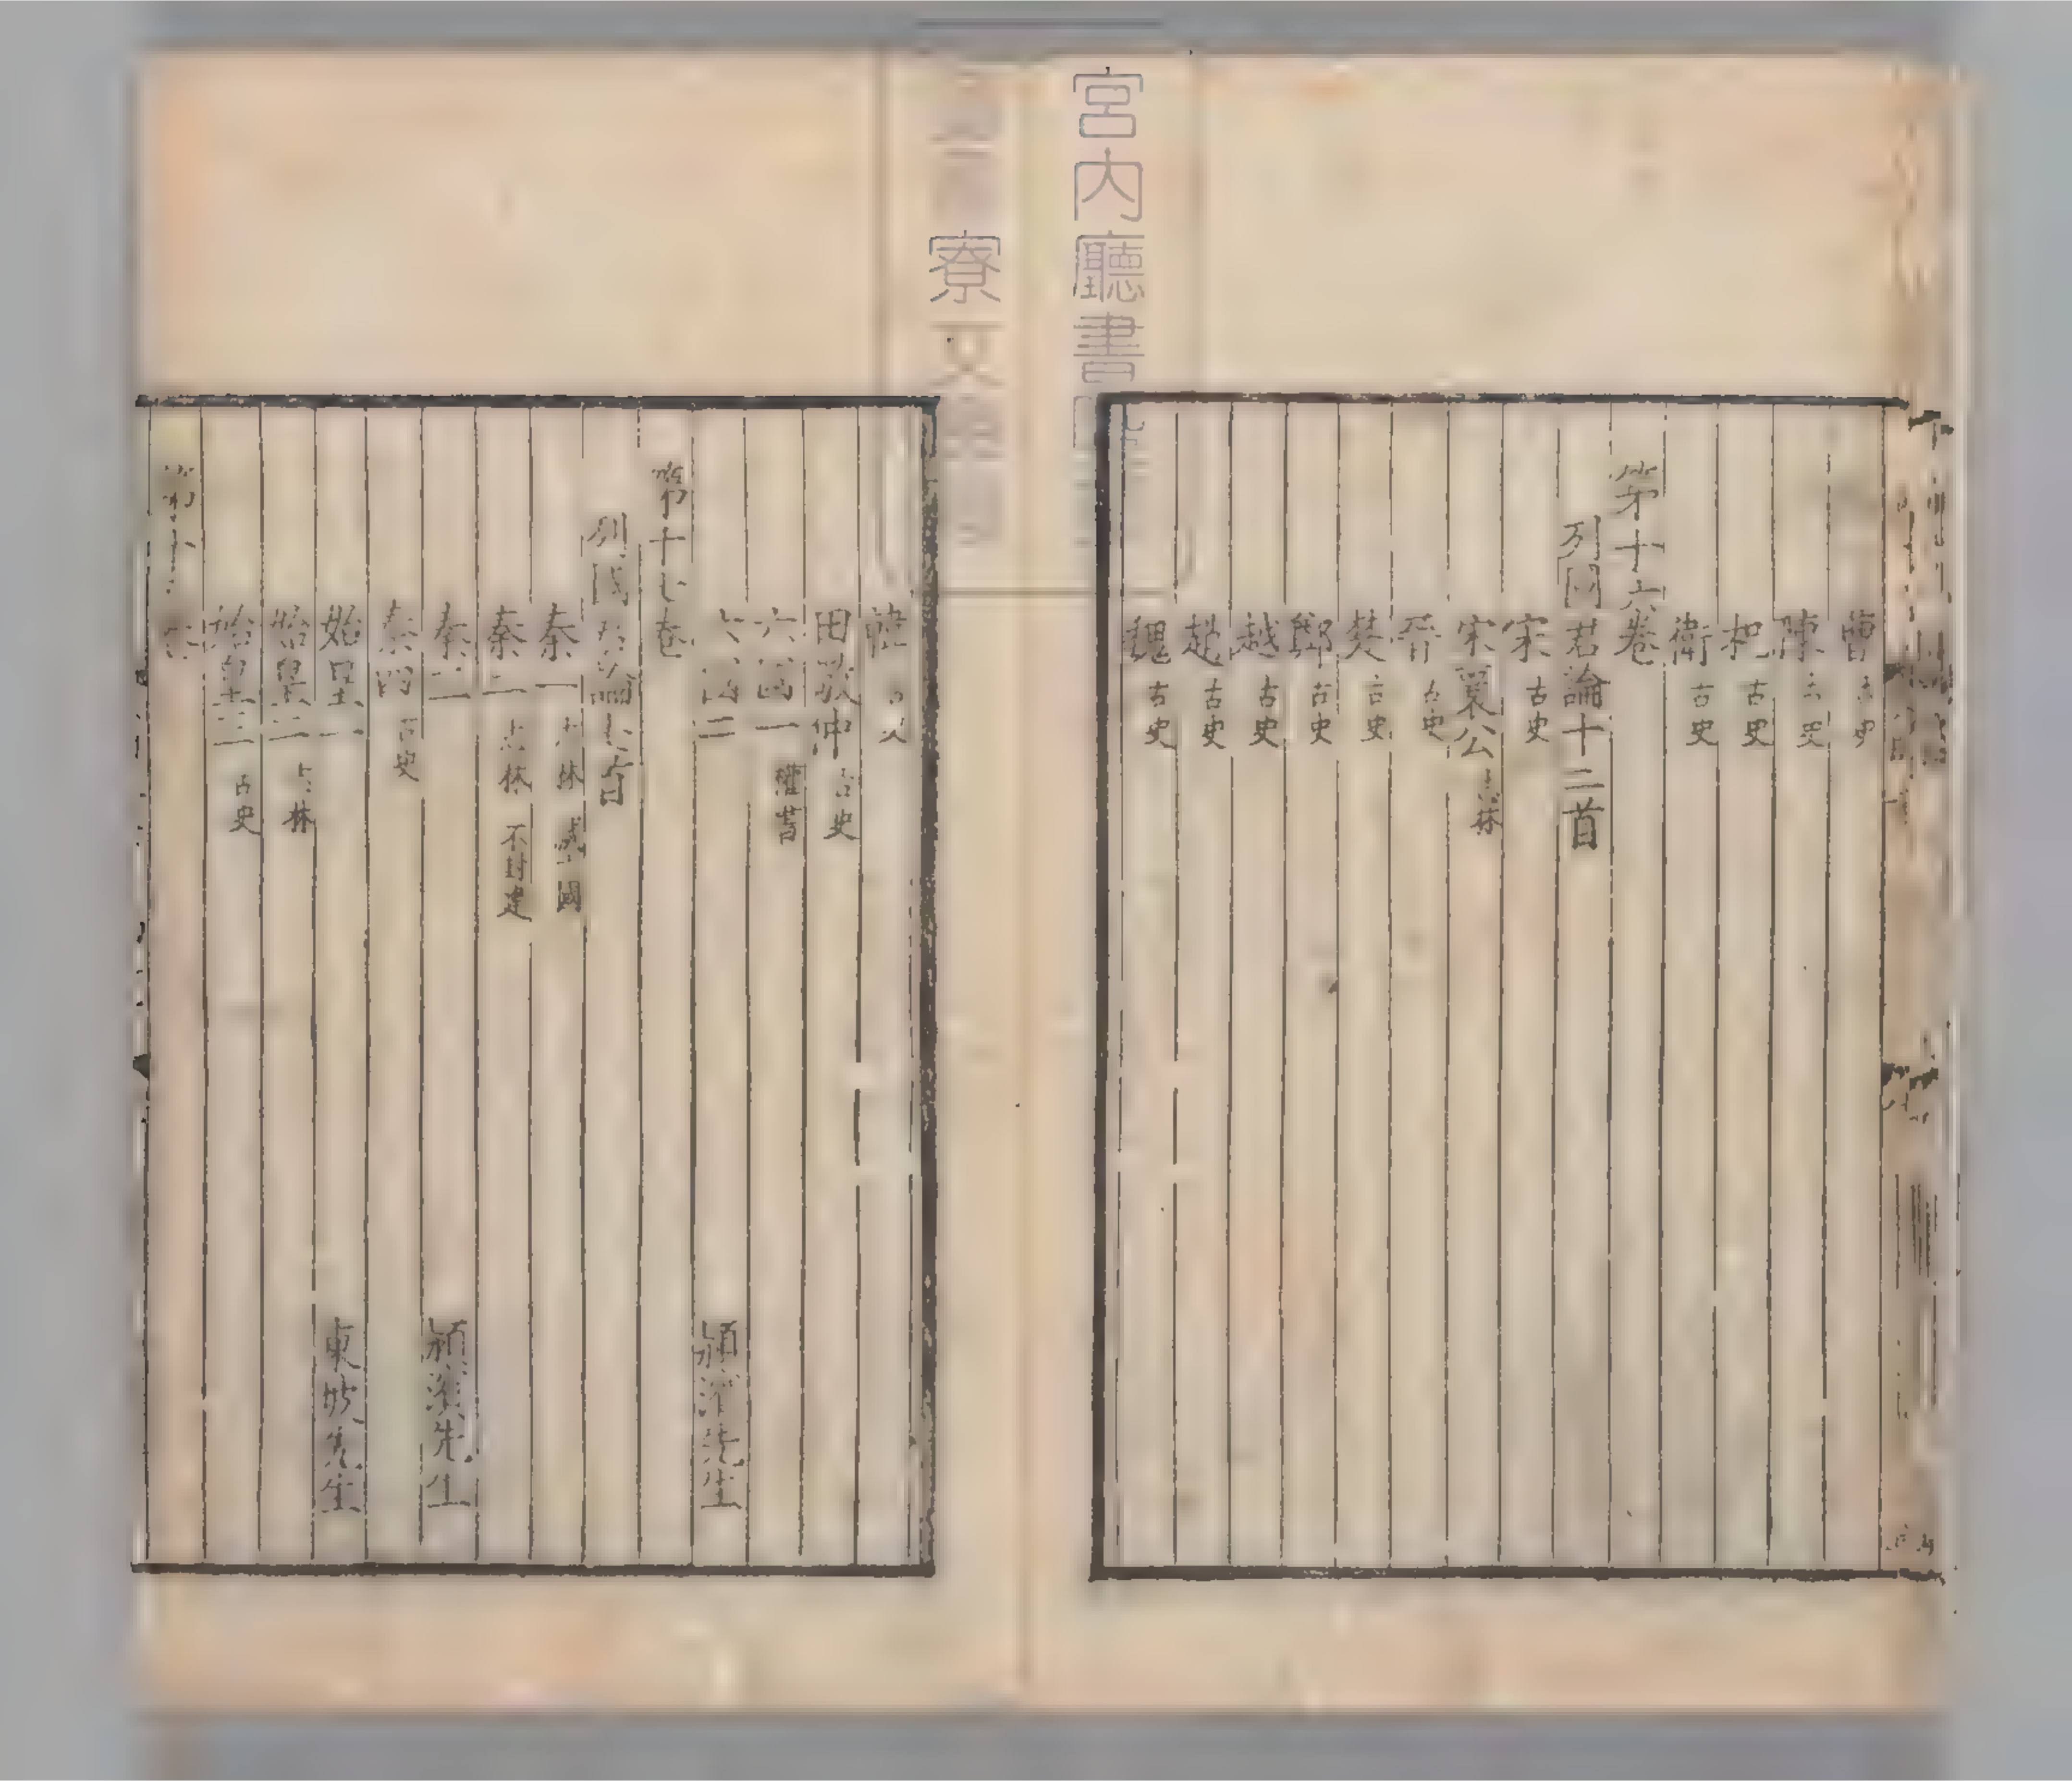 曹 古史
陳 古史
杞 古史
衛 古史
第十六卷
列國君論十二首
宋 古史
宋襄公 志林
晉 古史
楚 古史
鄭 古史
越 古史
趙 古史
魏 古史
韓 古史
田敬仲 古史
六國一 權書
六國二 潁濱先生
第十七卷
列國君論七首
秦一 志林 國
秦二 志林 不封建
秦三 潁濱先生
秦四 古史
始皇一 東坡先生
始皇二 志林
始皇三 古史
第十
宮內廳書
寮文